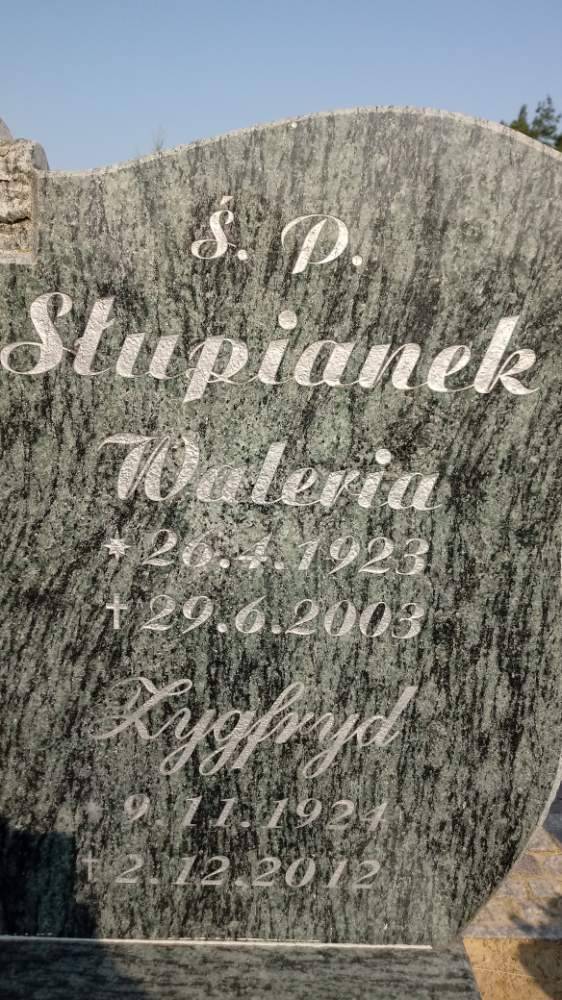 Ś. P.
Słupianek
Waleria
* 26.4.1923
† 29.6.2003
Zygfryd
* 9.11.1924
† 2.12.2012